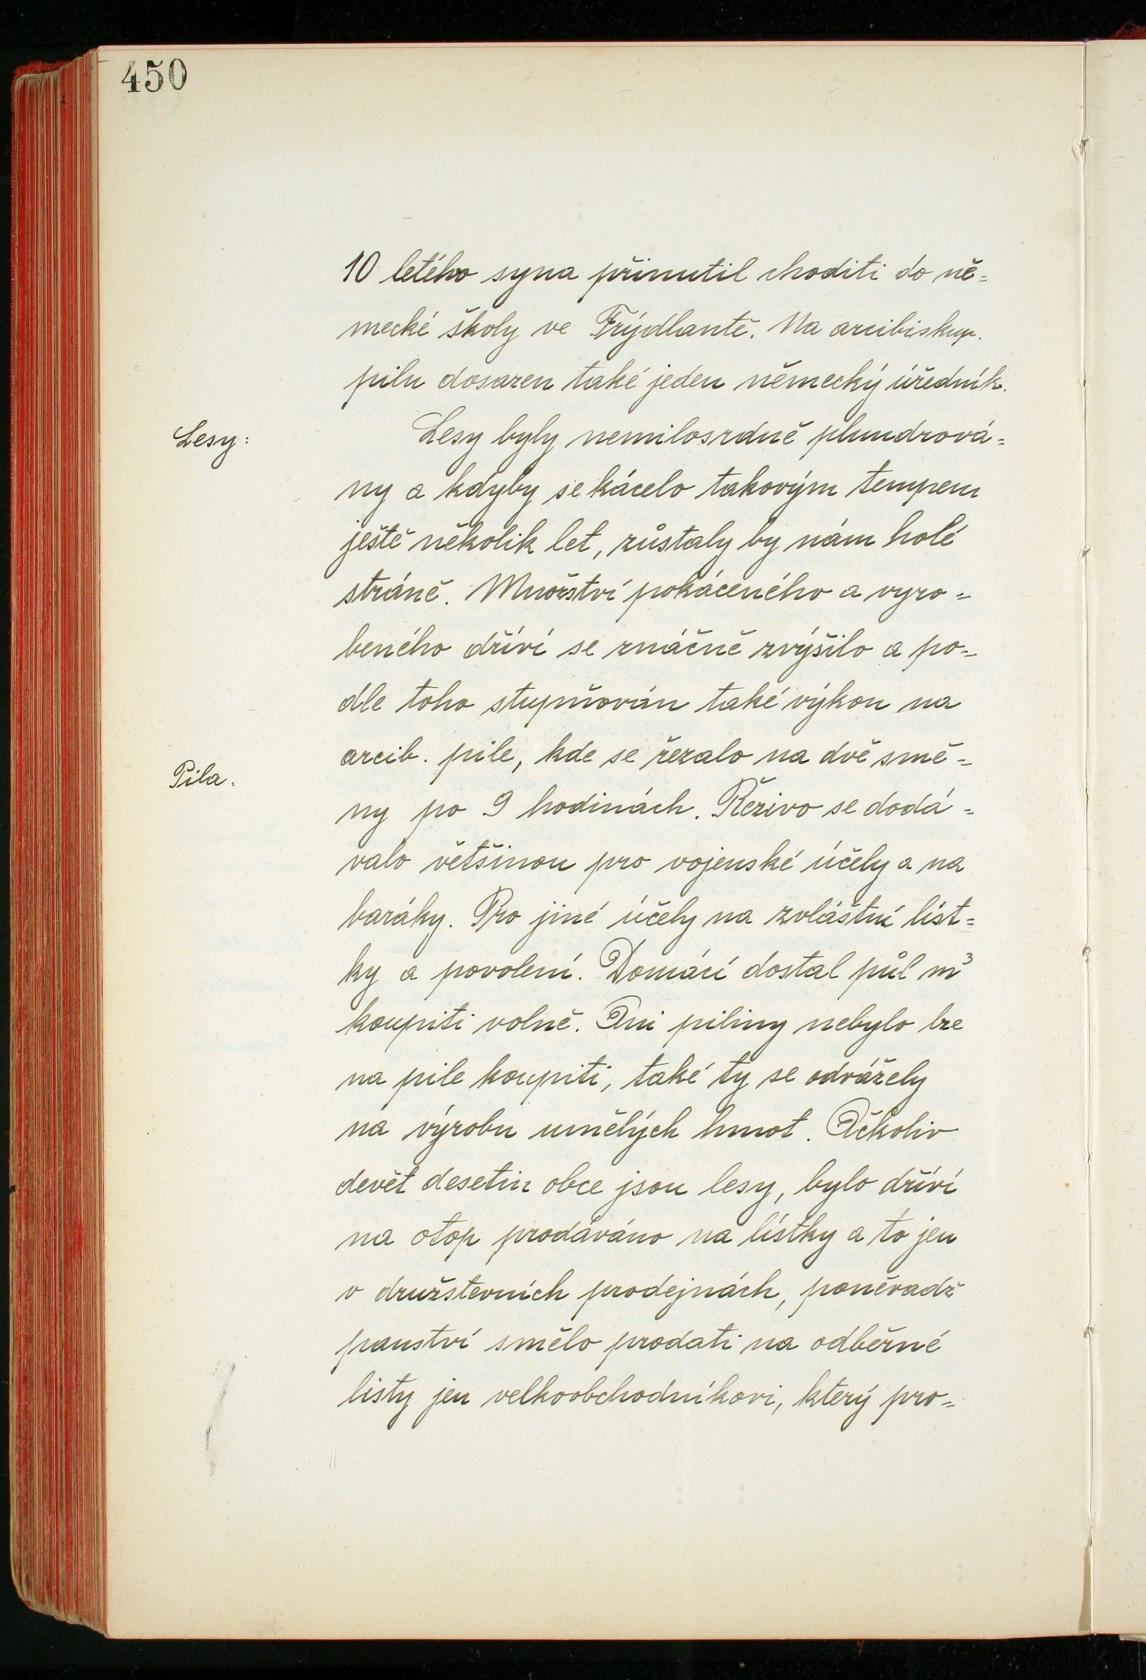 450
10 letého syna přinutil choditi do ně=
mecké školy ve Frýdlantě. Na arcibiskup.
pilu dosazen také jeden německý úředník.
Lesy:
Lesy byly nemilosrdně plundrová=
ny a kdyby se kácelo takovým tempem
ještě několik let, zůstaly by nám holé
stráně. Množství pokáceného a vyro=
beného dříví se značně zvýšilo a po=
dle toho stupňován také výkon na
arcib. pile, kde se řezalo na dvě smě=
Pila.
ny po 9 hodinách. Řezivo se dodá=
valo většinou pro vojenské účely a na
baráky. Pro jiné účely na zvláštní líst=
ky a povolení. Domácí dostal půl m³
koupiti volně. Ani piliny nebylo lze
na pile koupiti, také ty se odvážely
na výrobu umělých hmot. Ačkoliv
devět desetin obce jsou lesy, bylo dříví
na otop prodáváno na lístky a to jen
v družstevních prodejnách, poněvadž
panství smělo prodati na odběrné
listy jen velkoobchodníkovi, který pro=